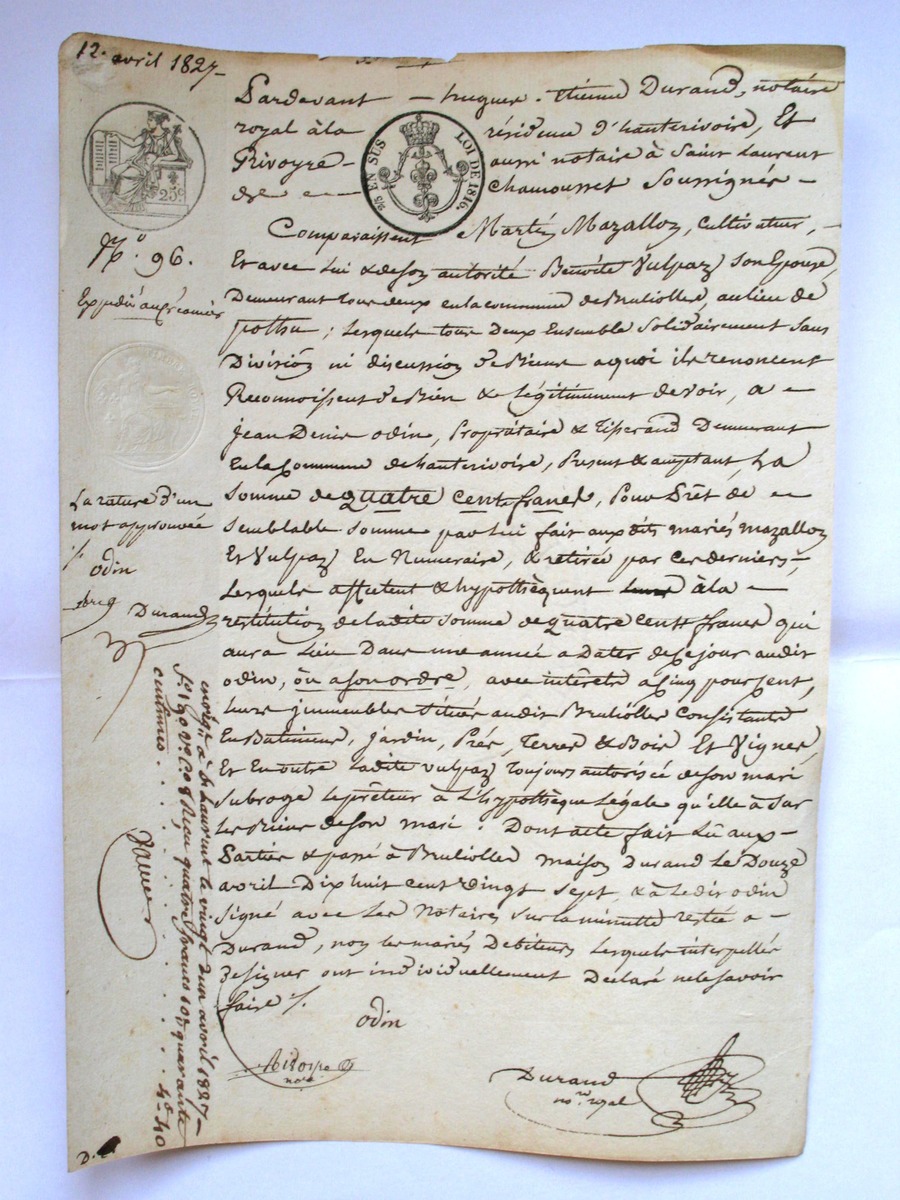 12. avril 1827
Pardevant hugues Etienne Durand, notaire
royal à la résidence d'hauterivoire, Et
Rivoyre aussi notaire à Saint Laurent
de Chamousset Soussignés
25 EN SUS LOI DE 1816.
25c.
N.o 96.
Comparaissent Mazalloz, cultivateur,
Et avec Lui & de son autorité Benoite Vulpaz son Epouse,
Demeurant tous deux en la commune de Brullolles, au lieu de
; Lesquels tous deux Ensemble Solidairement Sans
Division ni discussion de Biens a quoi ils renoncent
Reconnoissent de Bien & légitimement devoir, a
Jean Denis odin, Propriétaire & Tisserand Demeurant
En la Commune de hauterivoire, Present & acceptant, La
Somme de quatre cent francs, Pour Prêt de
Semblable Somme par Lui fait aux dits mariés mazalloz
Et Vulpaz En Numeraire, & retirée par ces derniers,
Lesquels affectent & hypothèquent à la
restitution de la dite Somme de quatre cent francs qui
aura Lieu Dans une année a Dater de ce jour audit
odin, ou a son ordre, avec intérêts a cinq pour cent,
Leurs immeubles Situés audit Brullolles Consistants
En Batiments, Jardin, Prés, Terres & Bois Et Vignes,
Et En outre Ladite Vulpaz toujours autorisée de son mari
Subroge Le prêteur à L'hypothèque Légale qu'elle à Sur
Les Biens de son mari. Dont acte fait Lû aux
Parties & passé à Brullolles maison Durand Le Douze
avril Dix huit cent vingt Sept, & à Ledit odin
Signé avec Les Notaires Sur la minutte restée a
Durand, non les mariés Debiteurs Lesquels interpellés
de signer ont individuellement Déclaré ne le savoir
faire ./.
odin
Durand
no.re royal
La rature d'un
mot approuvée
./.
odin
Durand
enreg.é à St Laurent le vingt un avril 1827
f.o 190 V.o C. 8 Reçu quatre francs quarante
centimes 4f 40